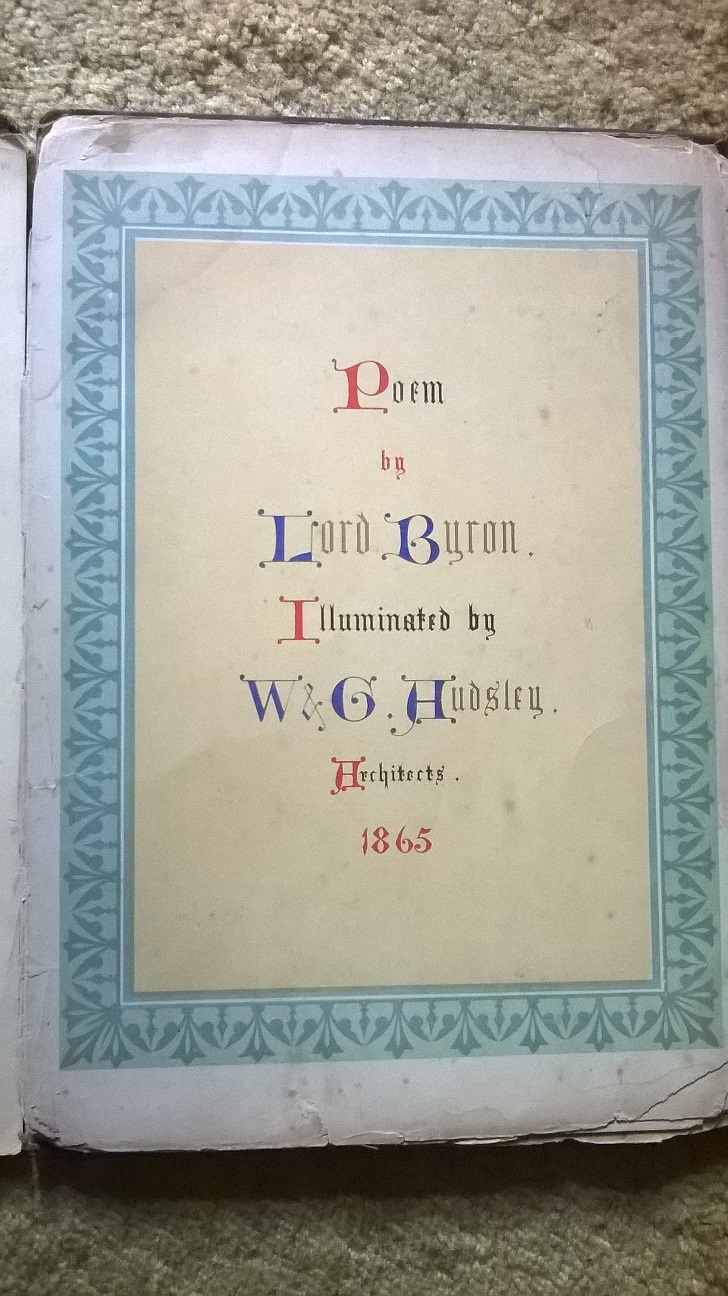 Poem
by
Lord Byron.
Illuminated by
W & G. Audsley.
Architects.
1865